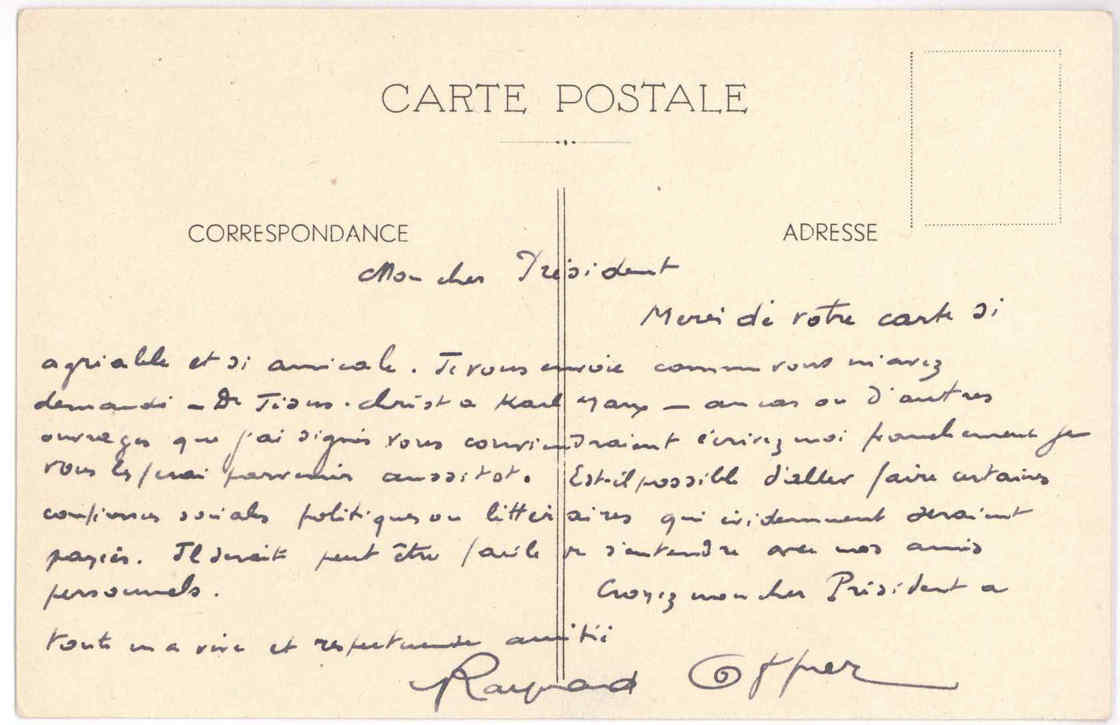 CARTE POSTALE
CORRESPONDANCE
ADRESSE
Mon cher Président
Merci de votre carte si
agréable et si amicale. Je vous envoie comme vous m'avez
demandé - De Jésus-christ a Karl Marx - au cas ou d'autres
ouvrages que j'ai signés vous conviendraient écrivez moi franchement je
vous les ferai parvenir aussitot. Est-il possible d'aller faire certaines
conférences sociales politiques ou littéraires qui évidemment seraient
payées. Il serait peut être facile de s'entendre avec nos amis
personnels.
Croyez mon cher Président a
toute ma vive et respectueuse amitié
Raymond Offner